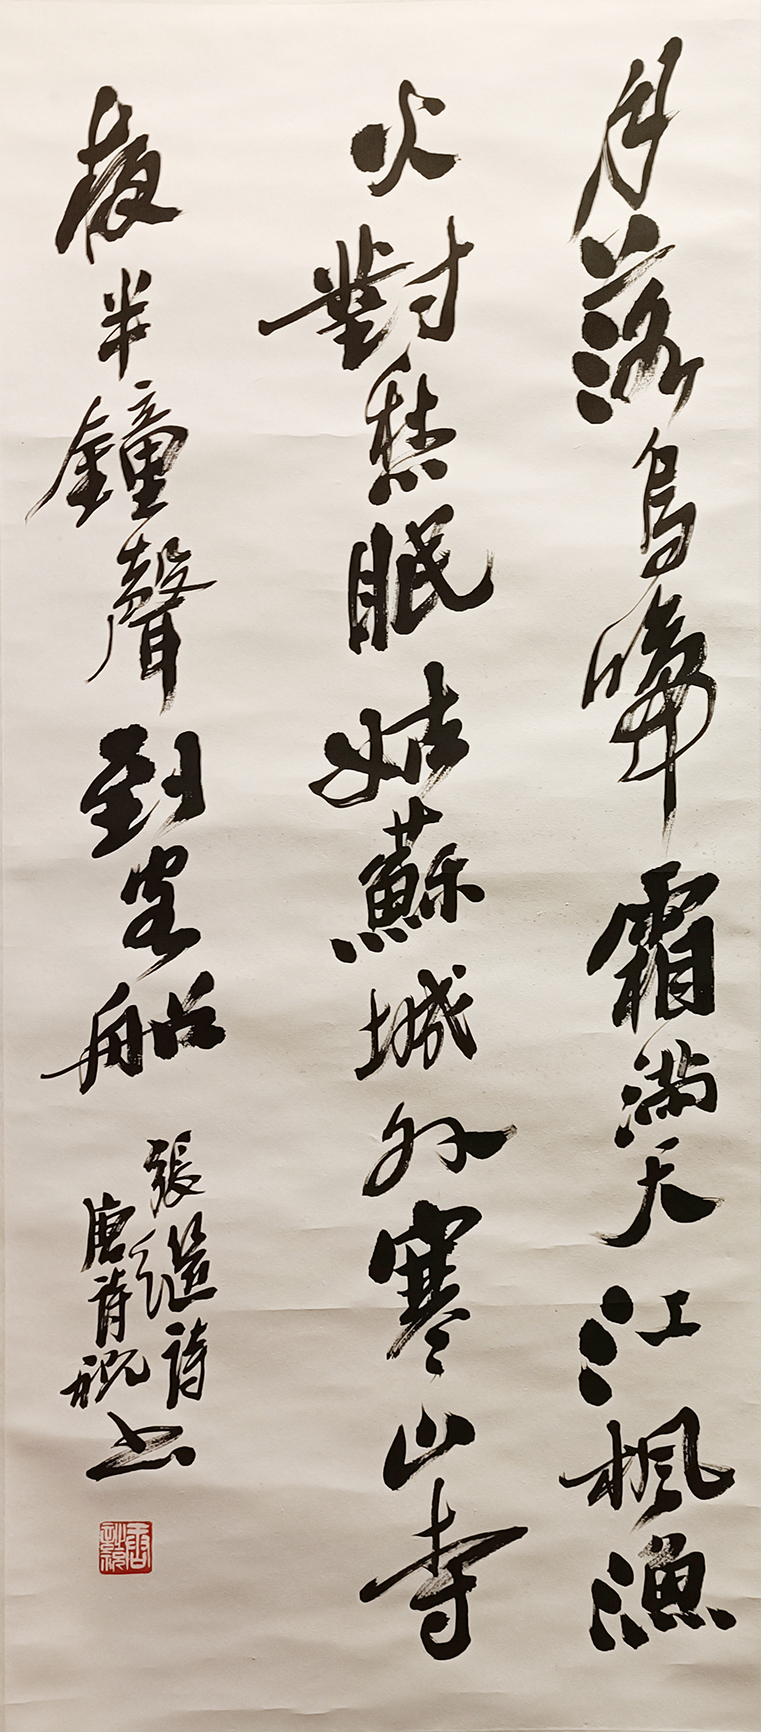 月落烏啼霜滿天江楓漁
火對愁眠姑蘇城外寒山寺
夜半鐘聲到客船
張繼詩
唐詩祝书